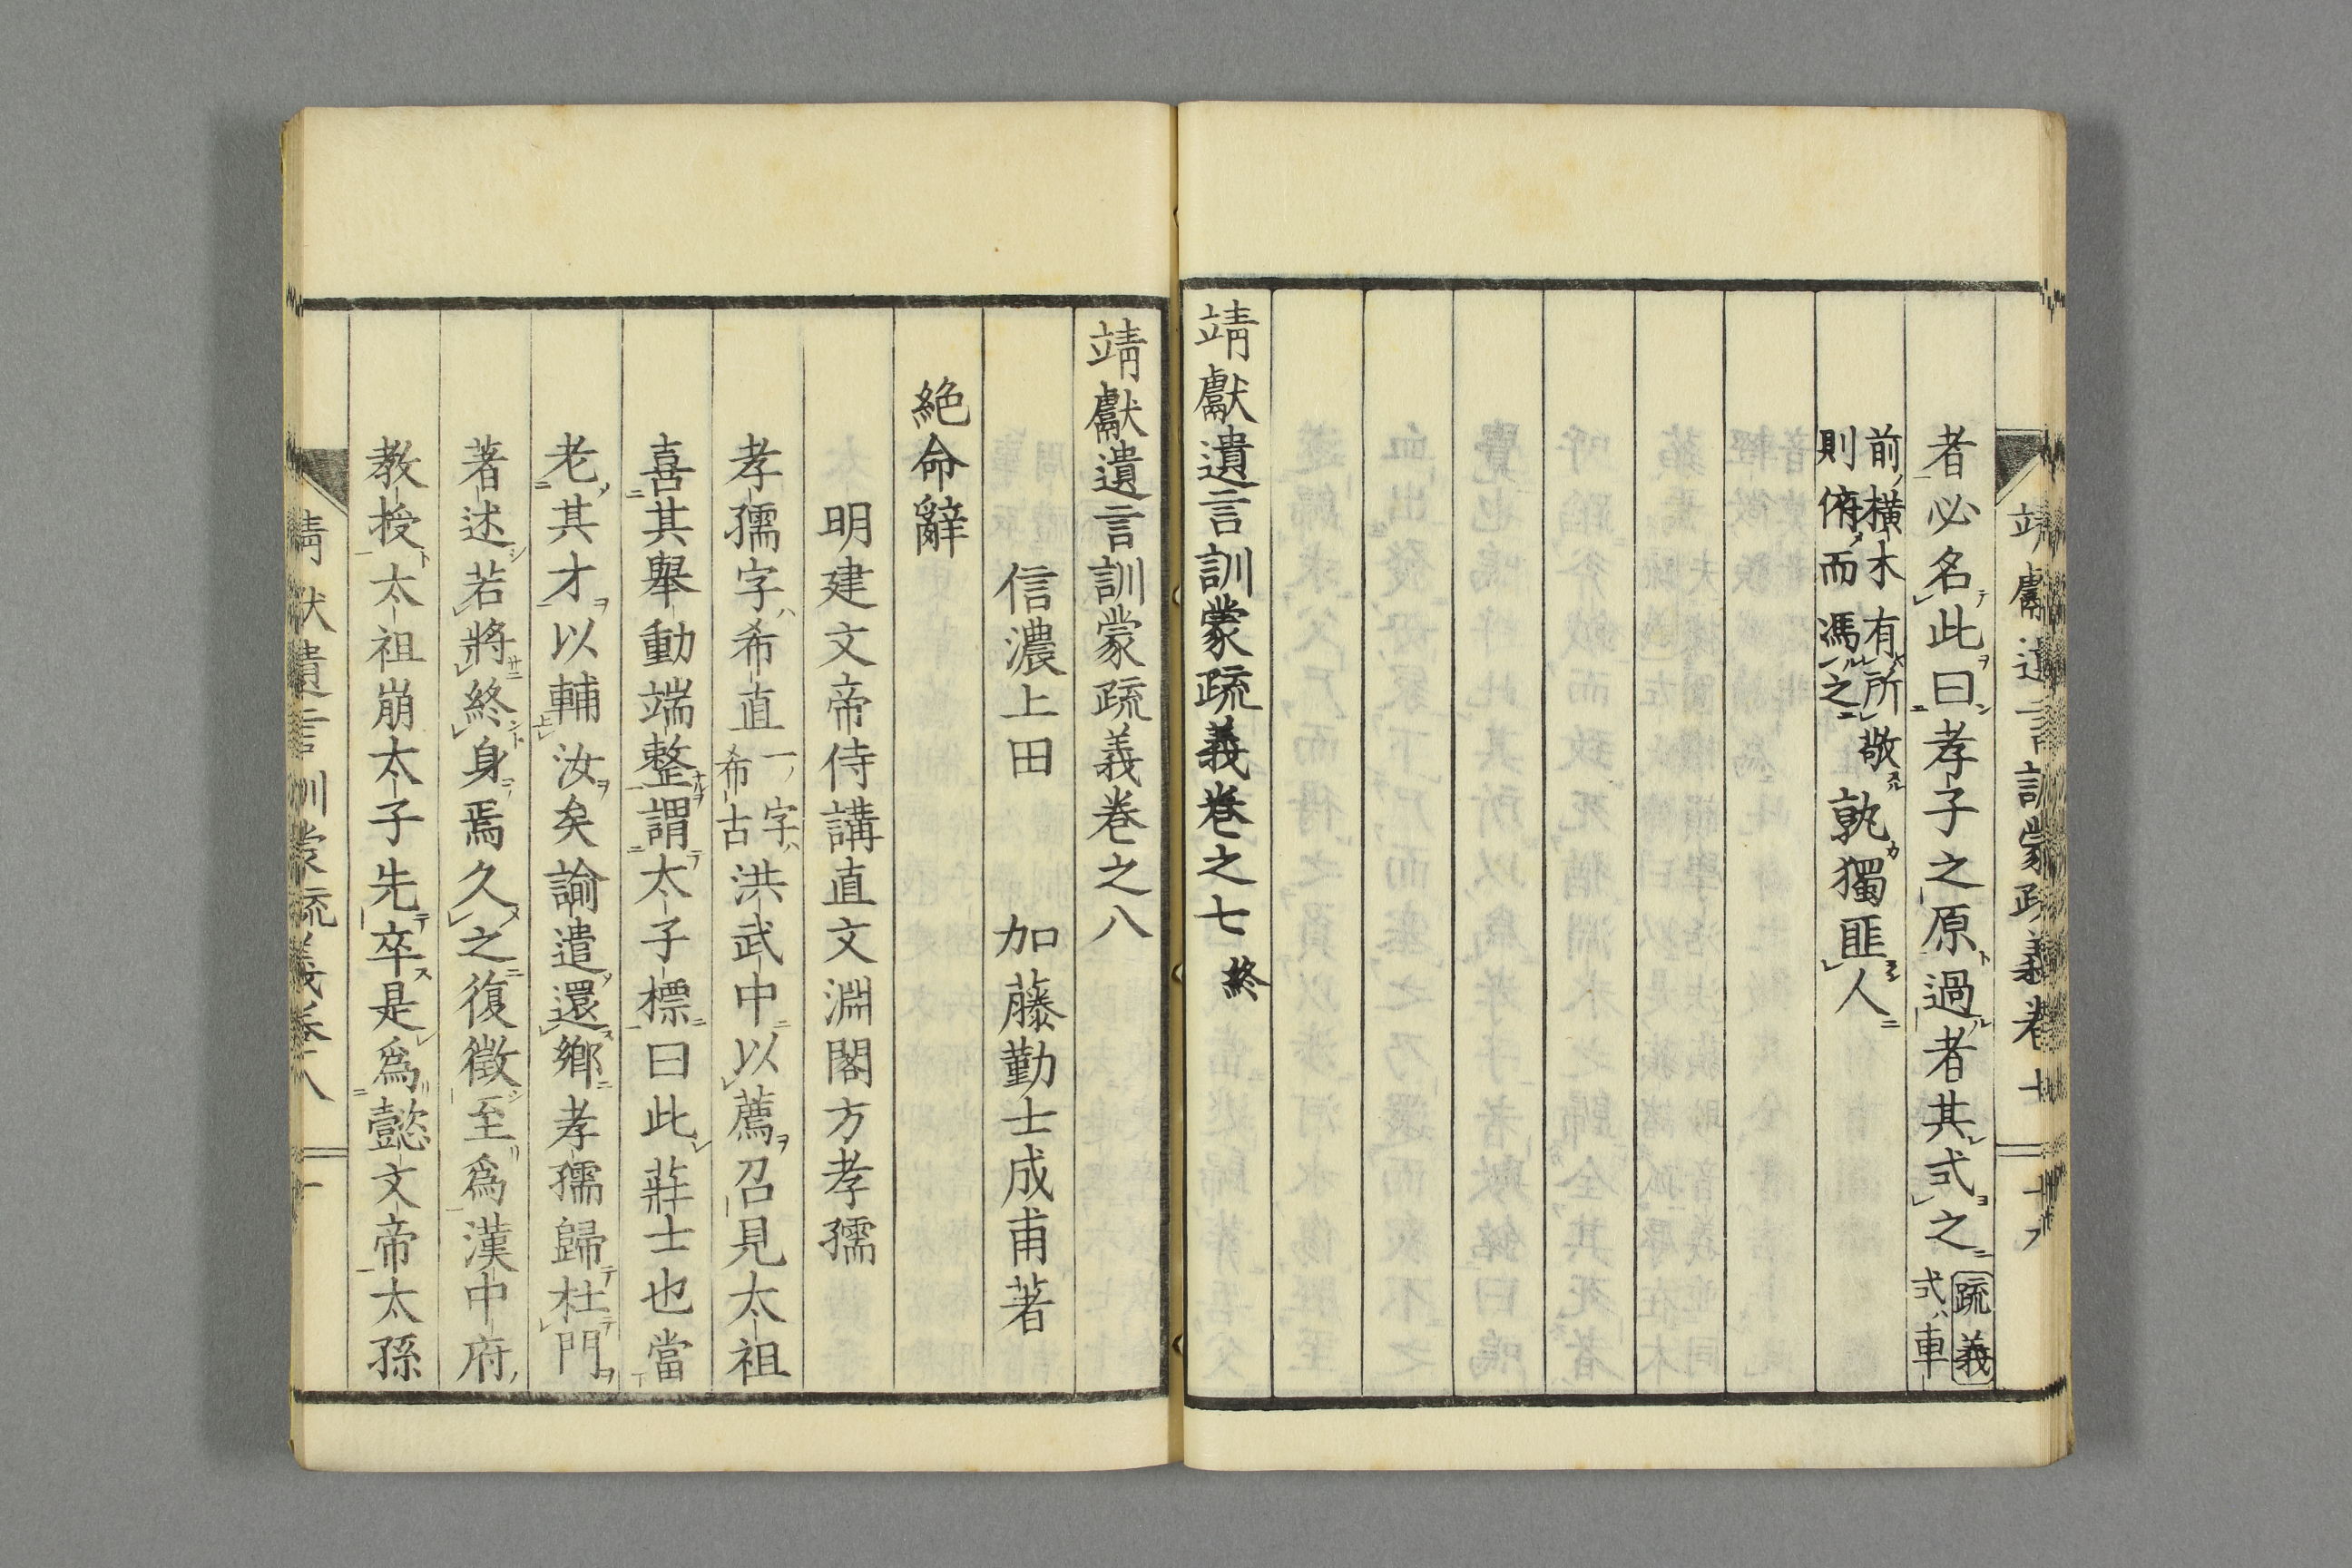 靖獻遺言訓蒙疏義卷七
十八
者必名此曰孝子之原過者其式之 疏義 式ハ車
前ノ橫木有所敬
則俯而馮之
孰獨匪人
靖獻遺言訓蒙疏義卷之七 終
靖獻遺言訓蒙疏義卷之八
信濃上田 加藤勤士成甫著
絶命辭
明建文帝侍講直文淵閣方孝孺
孝孺字ハ希直 一ノ字ハ 希古 洪武中ニ以薦ヲ召見太祖
喜其舉動端整謂太子標曰此莊士也當
老其才以輔汝矣諭遣還鄉孝孺歸杜門
著述若將終身焉久之復徵至爲漢中府
教授太祖崩太子先卒是爲懿文帝太孫
靖獻遺言訓蒙疏義卷八
一